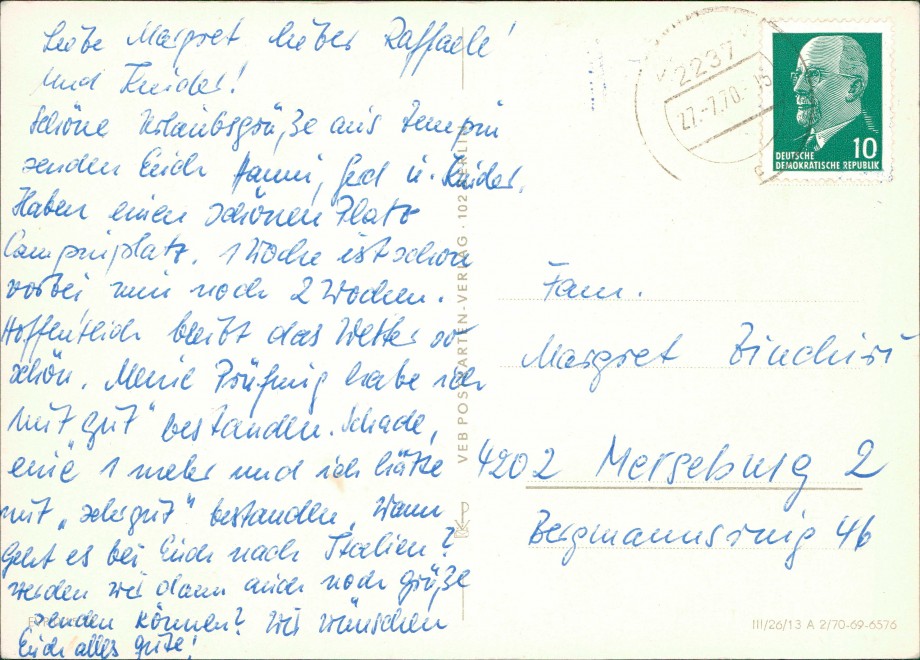 Liebe Margret lieber Raffaele!
und Kinder!
Schöne Urlaubsgrüße aus Zempin
senden Euch Hanni, Gerd u. Kinder.
Haben einen schönen Platz
Campinplatz. 1 Woche ist schon
vorbei nun noch 2 Wochen.
Hoffentlich bleibt das Wetter so
schön. Meine Prüfung habe ich
mit „gut“ bestanden. Schade,
eine 1 mehr und ich hätte
mit „sehrgut“ bestanden. Wann
geht es bei Euch nach Italien?
werden wir dann auch noch Grüße
senden können? Wir wünschen
Euch alles gute!
VEB POSTKARTEN-VERLAG · 102 BERLIN
2237
27.-7.70.-15
DEUTSCHE 10
DEMOKRATISCHE REPUBLIK
Fam.
Margret
4202 Merseburg 2
Bergmannsring 46
III/26/13 A 2/70-69-6576